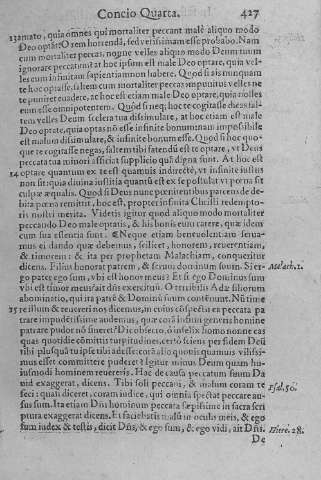 Concio Quarta. 427
13 amato, quia omnes qui mortaliter peccant malè aliquo modo
Deo optãt? O rem horrendã, sed verissimam esse probabo. Nam
cum mortaliter peccas, nogne velles aliquo modo Deum tuum
ignorare peccatum? at hoc ipsum est male Deo optare, quia vel-
les eum infinitam sapientiam non habere. Quod si ais nunquam
te hoc optasse, saltem cum mortaliter peccas impunitus velles ne
te puniret euadere, at hoc est etiam male Deo optare, quia nolles
eum esse omnipotentem. Quòd si neq; hoc te cogitasse dicas sal-
tem velles Deum scelera tua dissimulare, at hoc etiam est male
Deo optare, quia optas nõ esse infinite bonum: nam impossibile
est malum dissimulare, & infinite bonum esse. Quod si hoc quo-
que te cogitasse negas, saltem tibi fatendũ est te optare, vt Deus
peccata tua minori afficiat supplicio quã digna sunt. At hoc est
14 optare quantum ex te est quamuis indirectè, vt infinite iustus
non sit: quia diuina iustitia quanta est ex se postulat vt pœna sit
culpæ æqualis. Quod si Deus nunc pœnitentibus parcens de de-
bita pœna remittit, hoc est, propter infinita Christi redempto-
ris nostri merita. Videtis igitur quod aliquo modo mortaliter
peccando Deo male optatis, & his bonis eum carere, quæ idem
cum sua essentia sunt. ¶ Neque etiam beneuolentiam serua-
mus ei dando quæ debemus, scilicet, honorem, reuerentiam,
& timorem: & ita per prophetam Malachiam, conqueritur
dicens. Filius honorat patrem, & seruus dominum suum. Si er- Malach. 1.
go pater ego sum, vbi est honor meus? Et si ego Dominus sum
vbi est timor meus? ait dñs exercituũ. O terribilis Adæ filiorum
abominatio, qui ita patrẽ & Dominũ suum contẽnunt. Nũ time
15 re illum & reuereri nos dicemus, in cuius cõspectu ea peccata pa
trare impudẽtissime audemus, quæ corã infimi generis homine
patrare pudor nõ sineret? Dic obsecro, ò infelix homo nonne eas
quas quotidie cõmittis turpitudines, certò sciens per fidem Deũ
tibi plusquã tu ipse tibi adesse: corã alio quouis quamuis vilissi-
mus esset committere puderet? Igitur minus Deum quam hu-
iusmodi hominem reuereris. Hac de causa peccatum suum Da
uid exaggerat, dicens. Tibi soli peccaui, & malum coram te Psal. 50.
feci: quasi diceret, coram iudice, qui omnia spectat peccare au-
sus sum. Ita etiam Dñs hominum peccata sæpissime in sacra scri
ptura exaggerat dicens. Et faciebatis malũ in oculis meis, & ego
sum iudex & testis, dicit Dñs, & ego sum, & ego vidi, ait Dñs. Hiere. 28.
De